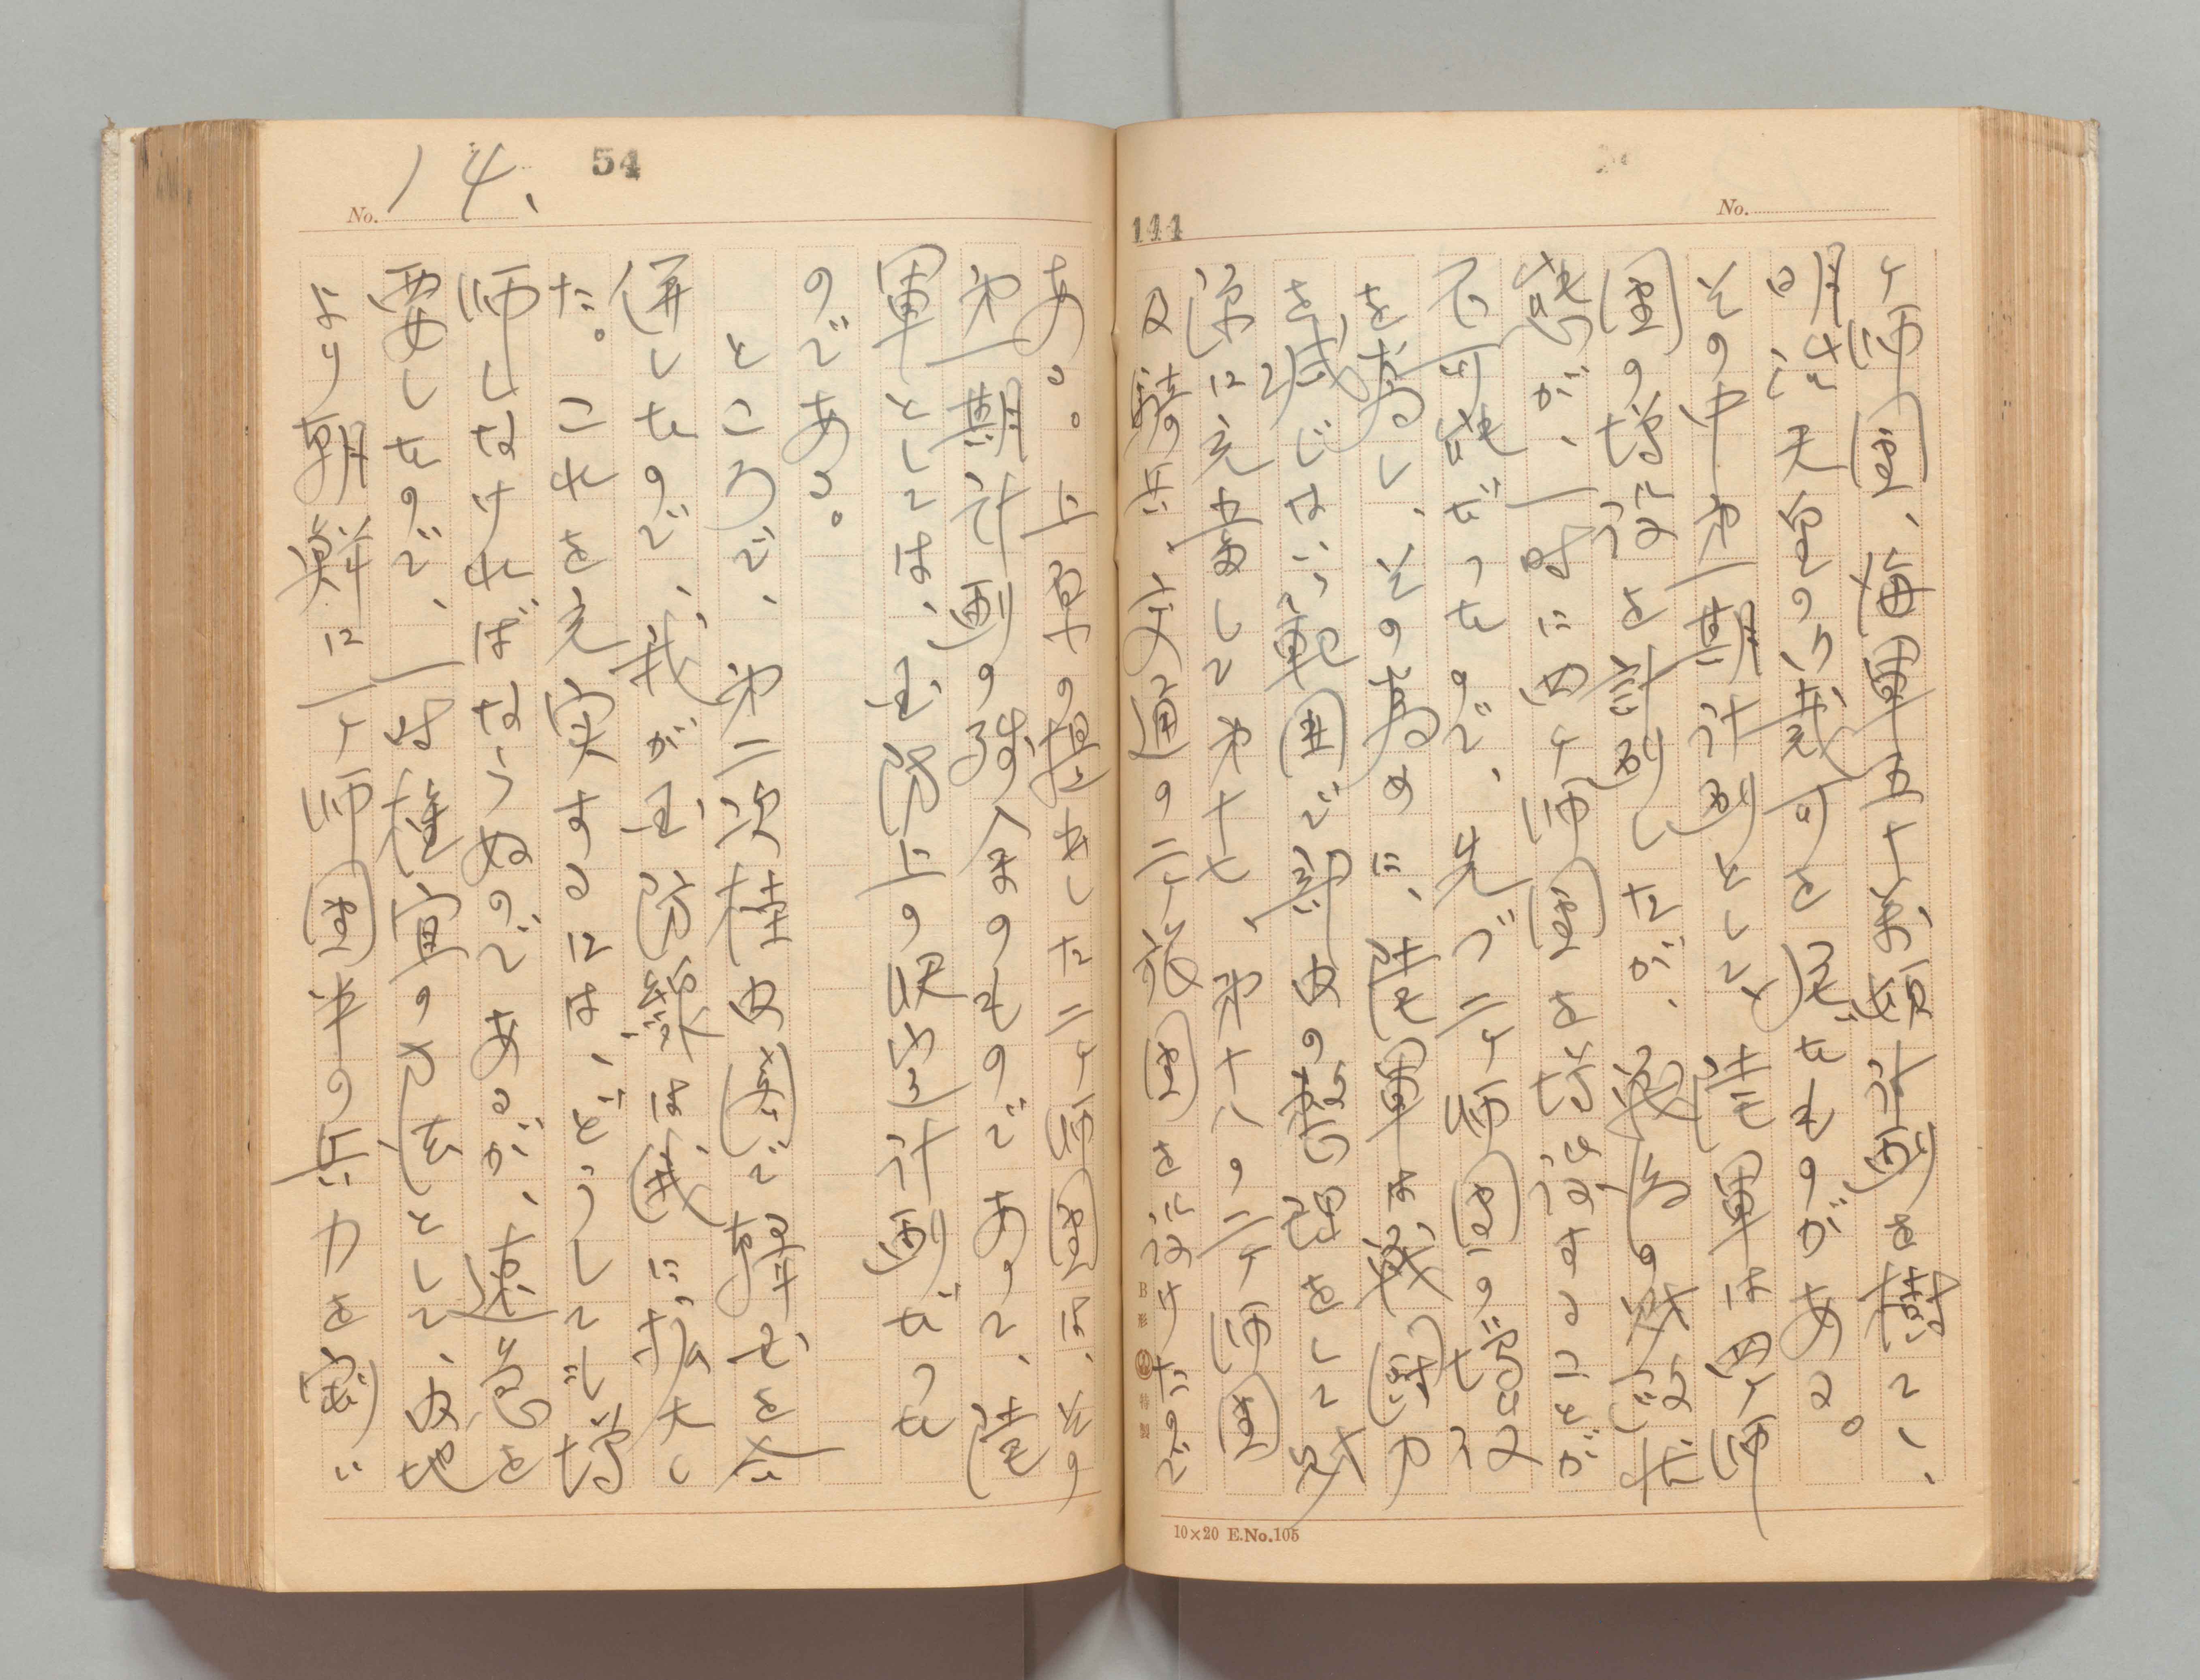 No.
144
ケ師團、海軍五十万頓計劃を樹てゝ、
明治天皇の御裁可を仰だものがある。
その中第一期計劃として、陸軍は四ケ師
團の増設を計劃したが、戦后の財政状
態が、一時に四ケ師團を増設することが
不可能だつたので、先づ二ケ師團の増設
を為し、その為めに、陸軍は戦闘力
を減じない範囲で部内の整理をして財
源に充當して第十七、第十八の二ケ師團
及騎兵、交通の二ケ旅團を設けたので
B形 特製
10×20 E.No.105
54
No. 14.
ある。上原の提出した二ケ師團は、その
第一期計劃の残余のものであつて、陸
軍としては、国防上の既定計劃だつた
のである。
ところで、第二次桂内閣で韓国を合
併したので、我が国防線は、俄に拡大し
た。これを充実するには、どうしても増
師しなければならぬのであるが、速急を
要したので、一時権宜の方法として、内地
より朝鮮に一ケ師團半の兵力を割い